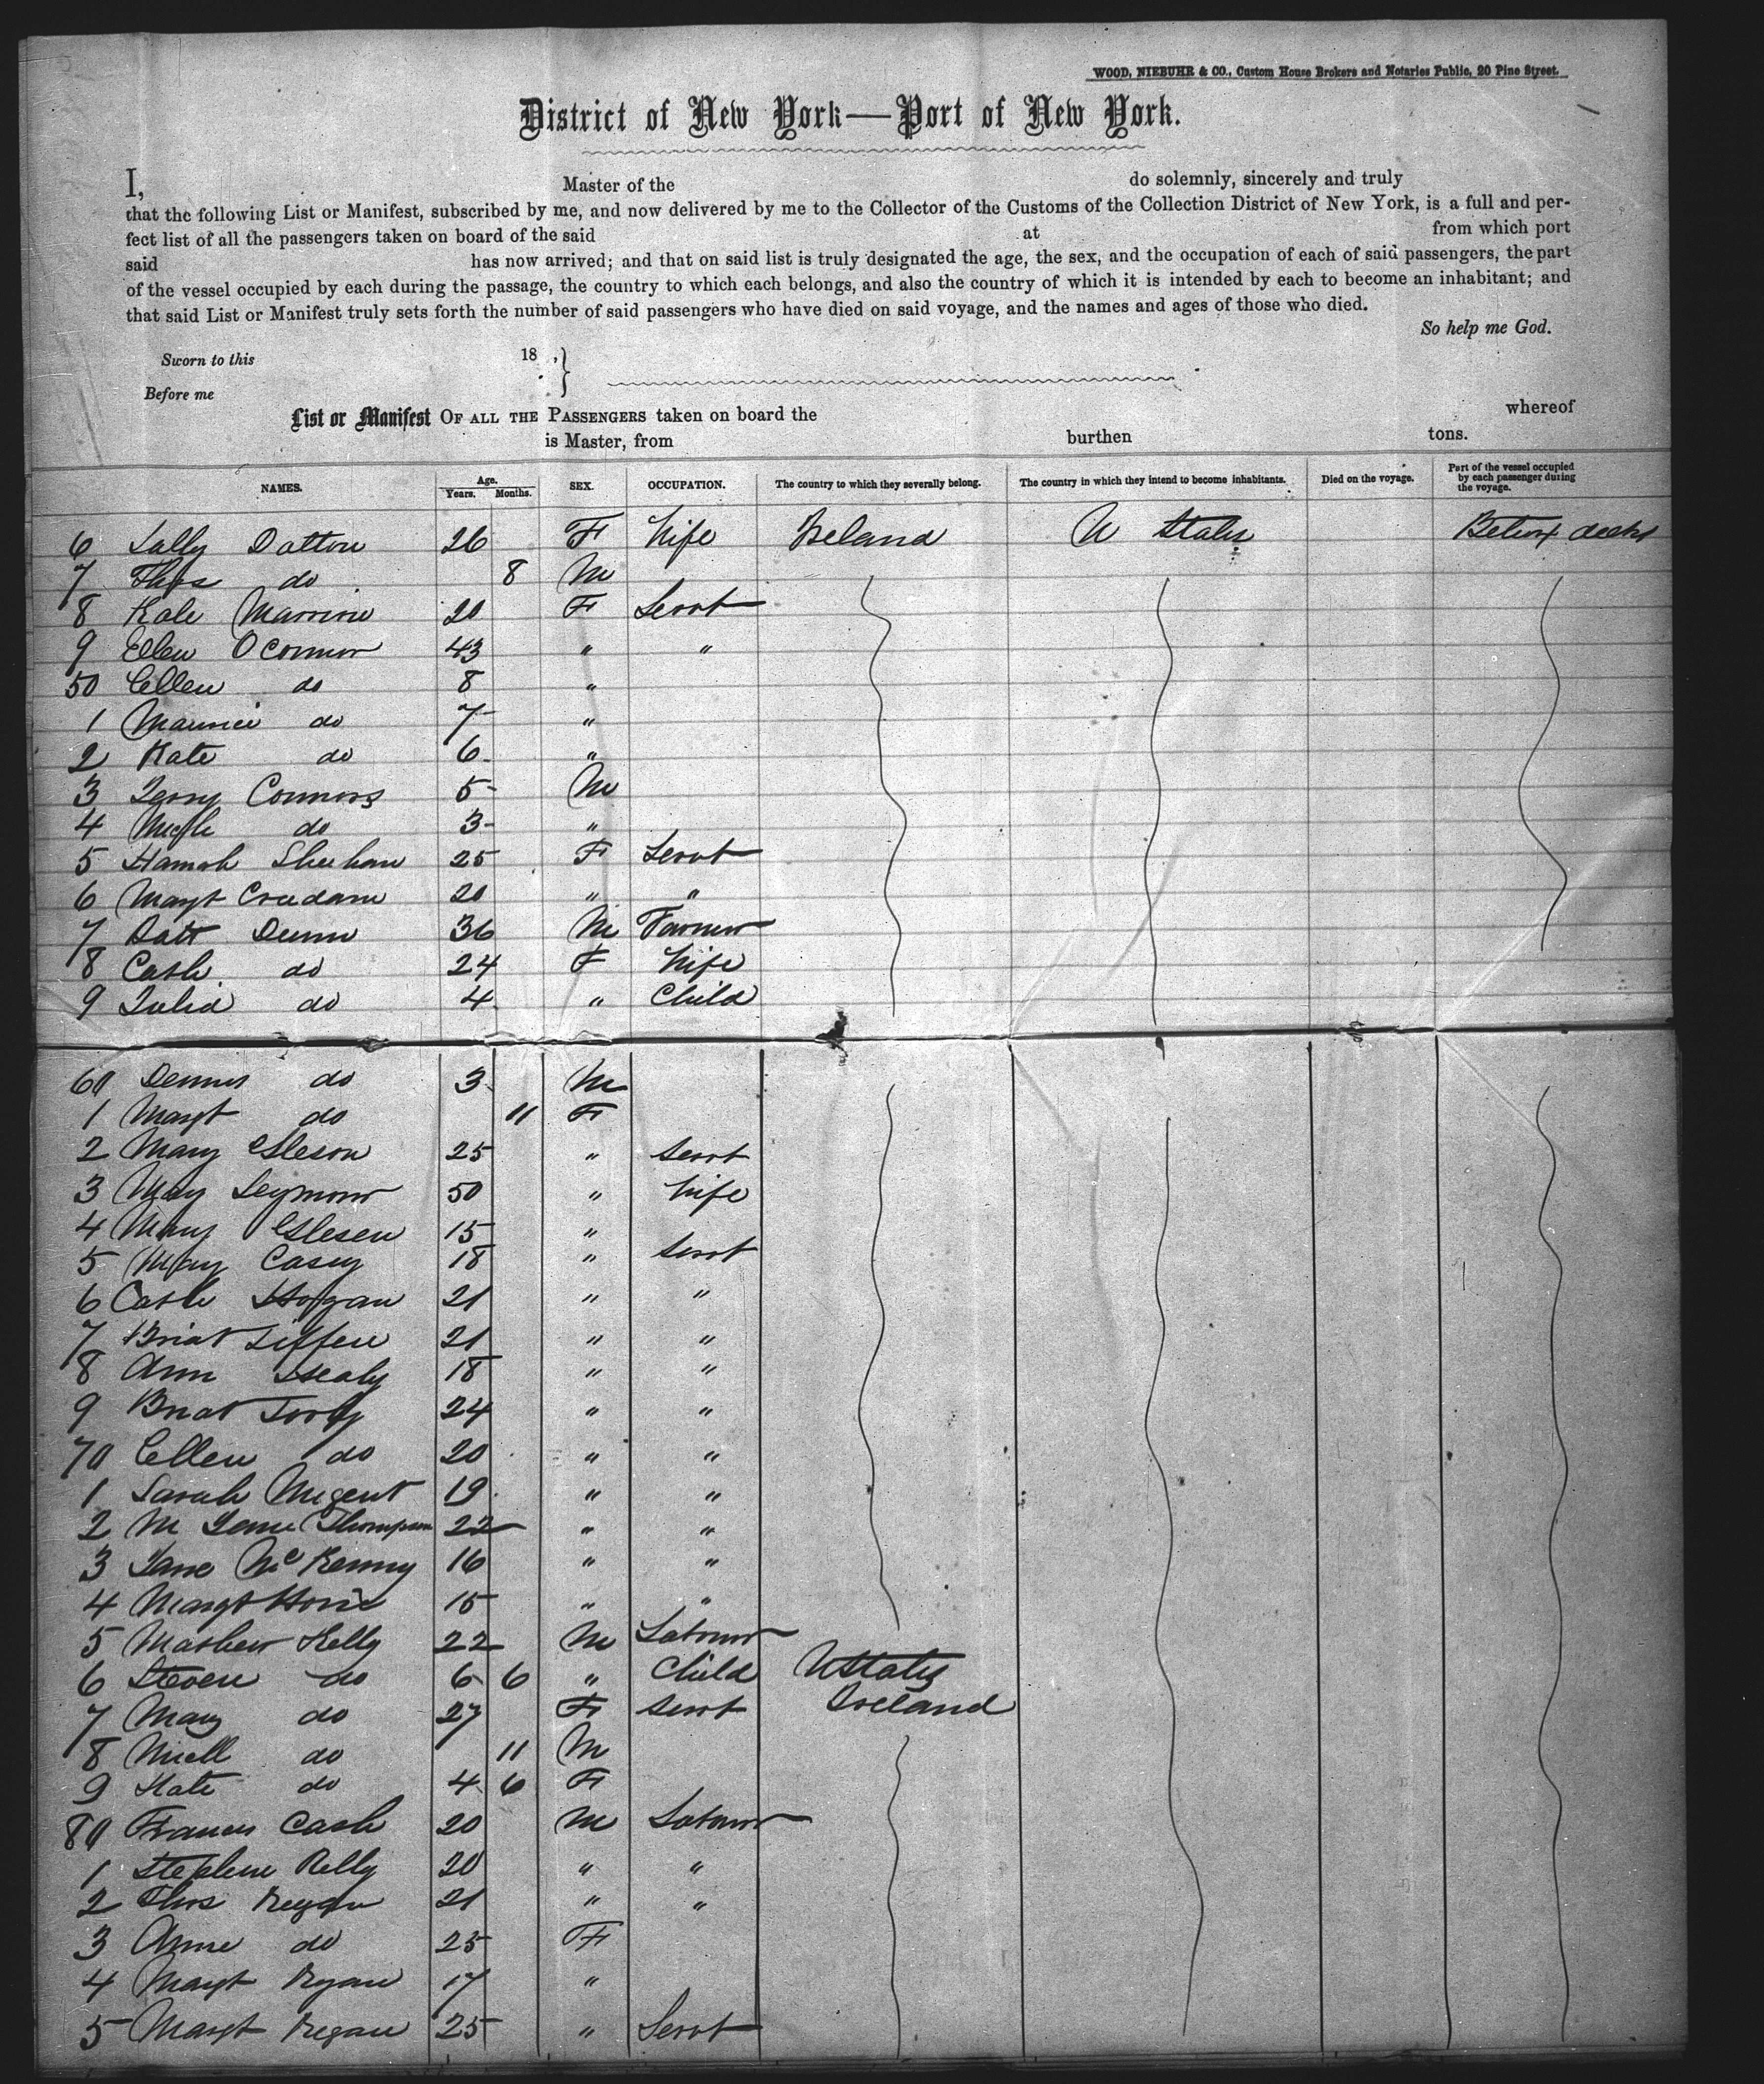 WOOD, NIEBUHR & CO., Custom House Brokers and Notaries Public, 20 Pine Street.
District of New York—Port of New York.
I, Master of the do solemnly, sincerely and truly
that the following List or Manifest, subscribed by me, and now delivered by me to the Collector of the Customs of the Collection District of New York, is a full and per-
fect list of all the passengers taken on board of the said at from which port
said has now arrived; and that on said list is truly designated the age, the sex, and the occupation of each of said passengers, the part
of the vessel occupied by each during the passage, the country to which each belongs, and also the country of which it is intended by each to become an inhabitant; and
that said List or Manifest truly sets forth the number of said passengers who have died on said voyage, and the names and ages of those who died.
So help me God.
Sworn to this 18 ,
Before me
List or Manifest OF ALL THE PASSENGERS taken on board the whereof
is Master, from burthen tons.
NAMES. Age. Years. Months. SEX. OCCUPATION. The country to which they severally belong. The country in which they intend to become inhabitants. Died on the voyage. Part of the vessel occupied by each passenger during the voyage.
6 Sally Dalton 26 F Wife Ireland U States Betwx decks
7 Thos do 8 M
8 Kate 20 F Servt
9 Ellen O Connor 43 " "
50 Ellen do 8 "
1 Maurice do 7 "
2 Kate do 6 "
3 Jerry Connors 5 M
4 Mich do 3 "
5 Hannah Sheehan 25 F Servt
6 Margt 20 " "
7 Patt Dunn 36 M Farmer
8 Cath. do 24 F Wife
9 Julia do 4 " Child
60 Dennis do 3 M
1 Margt do 11 F
2 Mary Gleson 25 " Servt
3 Mary Seymour 50 " Wife
4 Mary Glesen 15 "
5 Mary Casey 18 " Servt
6 Cath Horgan 21 " "
7 Bridt 21 " "
8 Ann Healy 18 " "
9 Bridt 24 " "
70 Ellen do 20 " "
1 Sarah Nugent 19 " "
2 M Thompson 22 " "
3 Jane McKenny 16 " "
4 Margt 15 " "
5 Mathew Kelly 22 M Labourer
6 Steven do 6 6 " Child U States
7 Mary do 27 F Servt Ireland
8 Michl do 11 M
9 Kate do 4 6 F
80 Frances Cash 20 M Labourer
1 Stephen Kelly 20 " "
2 Thos Regan 21 " "
3 Anne do 25 F
4 Margt Ryan 17 "
5 Margt Regan 25 " Servt